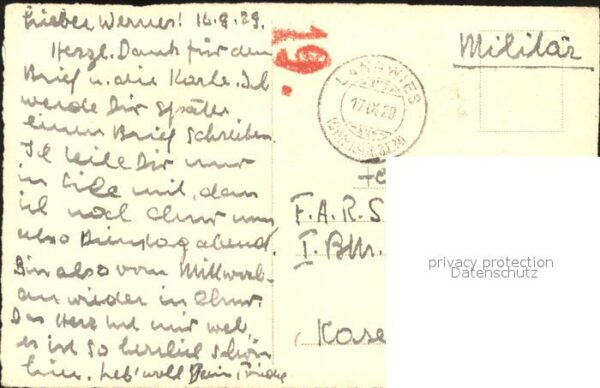 Lieber Werner! 16.9.29.
Herzl. Dank für den
Brief u. die Karte. Ich
werde Dir später
einen Brief schreiben.
Ich teile Dir nur
in Eile mit, dass
ich nach Chur
also Dienstag abend.
Bin also vom Mittwoch
an wieder in Chur.
Das Herz tut mir weh,
es ist so herrlich schön
hier. Leb' wohl Dein
19.
LANGWIES
17.IX.29
Militär
F.A.R.S
I. Bttr.
Kase
privacy protection
Datenschutz